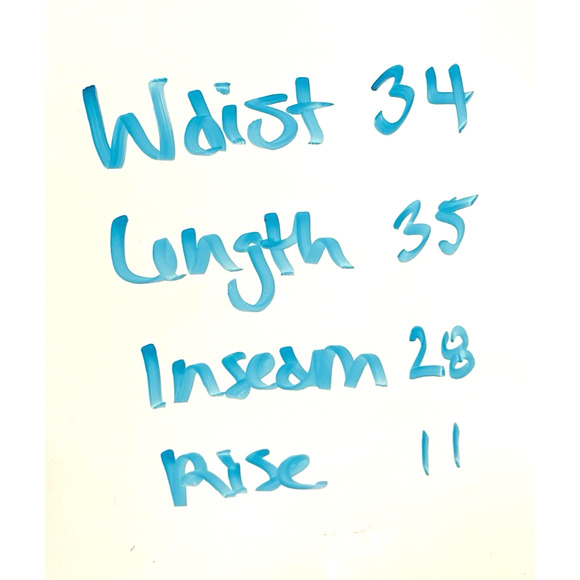 Waist 34
Length 35
Inseam 28
Rise 11